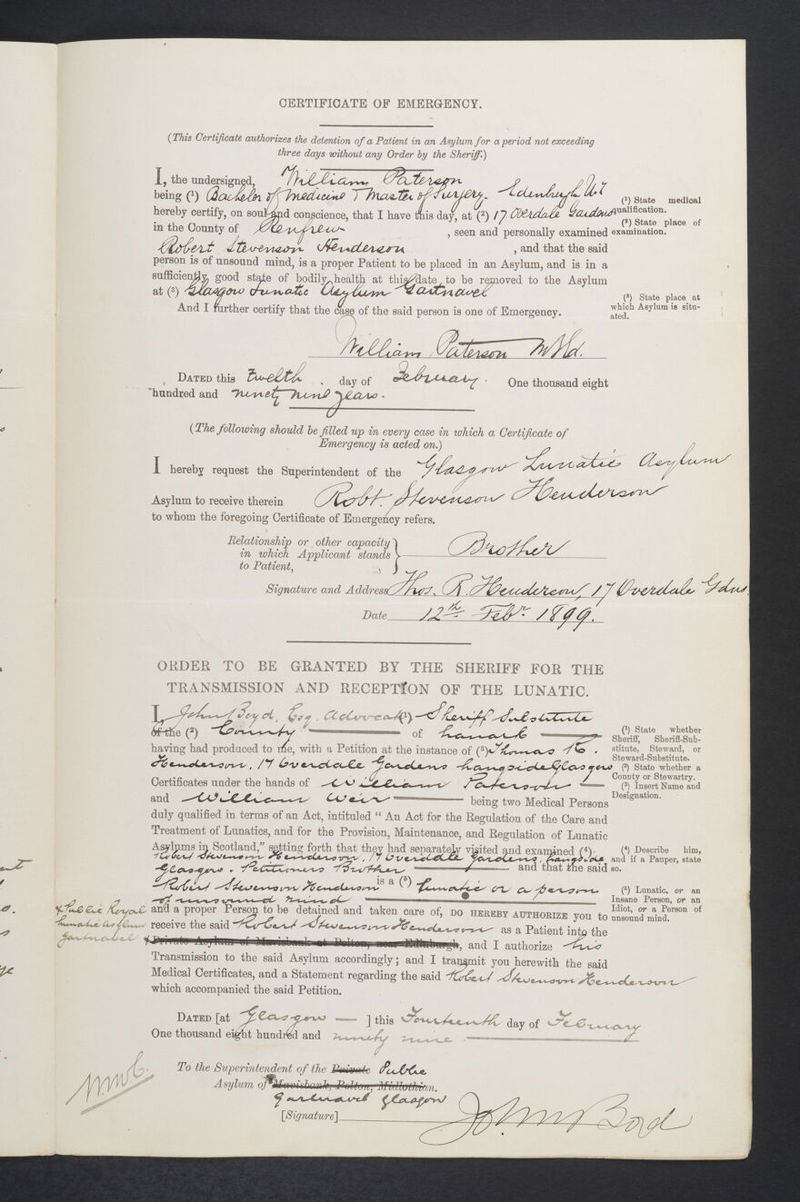 CERTIFICATE OF EMERGENCY.
(This Certificate authorizes the detention of a Patient in an Asylum for a period not exceeding
three days without any Order by the Sheriff.)
I, the undersigned, William Paterson
being (1) Bachelor of Medicine & Master of Surgery. Edinburgh
hereby certify, on soul and conscience, that I have this day, at (2) 17 Overdale Gardens
in the County of Renfrew, seen and personally examined
Robert Stevenson Henderson, and that the said
person is of unsound mind, is a proper Patient to be placed in an Asylum, and is in a
sufficiently good state of bodily health at this date to be removed to the Asylum
at (3) Glasgow Lunatic Asylum Gartnavel
And I further certify that the case of the said person is one of Emergency.
(1) State medical
qualification.
(2) State place of
examination.
(3) State place at
which Asylum is situ-
ated.
William Paterson
DATED this twelfth day of February. One thousand eight
hundred and ninety nine years.
(The following should be filled up in every case in which a Certificate of
Emergency is acted on.)
I hereby request the Superintendent of the Glasgow Lunatic Asylum
Asylum to receive therein Robt. Stevenson Henderson
to whom the foregoing Certificate of Emergency refers.
Relationship or other capacity
in which Applicant stands
to Patient,
Brother
Signature and Address Thos. R. Henderson, 17 Overdale Gdns
Date 12th Febr. 1899.
ORDER TO BE GRANTED BY THE SHERIFF FOR THE
TRANSMISSION AND RECEPTION OF THE LUNATIC.
I, John Boyd, Esq. Advocate (1) Sheriff Substitute
of the (2) County of Lanark
having had produced to me, with a Petition at the instance of (3) Thomas R.
Henderson, 17 Overdale Gardens Langside Glasgow
Certificates under the hands of William Paterson
and William Weir being two Medical Persons
duly qualified in terms of an Act, intituled "An Act for the Regulation of the Care and
Treatment of Lunatics, and for the Provision, Maintenance, and Regulation of Lunatic
Asylums in Scotland," setting forth that they had separately visited and examined (4)
Robert Stevenson Henderson, 17 Overdale Gardens, Langside
Glasgow. Petitioners Brother and that the said
Robert Stevenson Henderson is a (5) lunatic or a person
of unsound mind
and a proper Person to be detained and taken care of, DO HEREBY AUTHORIZE you to
receive the said Robert Stevenson Henderson as a Patient into the
Private Asylum of Mavisbank at Polton, near Edinburgh, and I authorize his
Transmission to the said Asylum accordingly; and I transmit you herewith the said
Medical Certificates, and a Statement regarding the said Robert Stevenson Henderson
which accompanied the said Petition.
x Public Royal
Lunatic Asylum
Gartnavel
(1) State whether
Sheriff, Sheriff-Sub-
stitute, Steward, or
Steward-Substitute.
(2) State whether a
County or Stewartry.
(3) Insert Name and
Designation.
(4) Describe him,
and if a Pauper, state
so.
(5) Lunatic, or an
Insane Person, or an
Idiot, or a Person of
unsound mind.
DATED [at Glasgow ] this Fourteenth day of February
One thousand eight hundred and ninety nine.
To the Superintendent of the Private Public
Asylum of Mavisbank, Polton, Midlothian.
Gartnavel Glasgow
[Signature] John Boyd